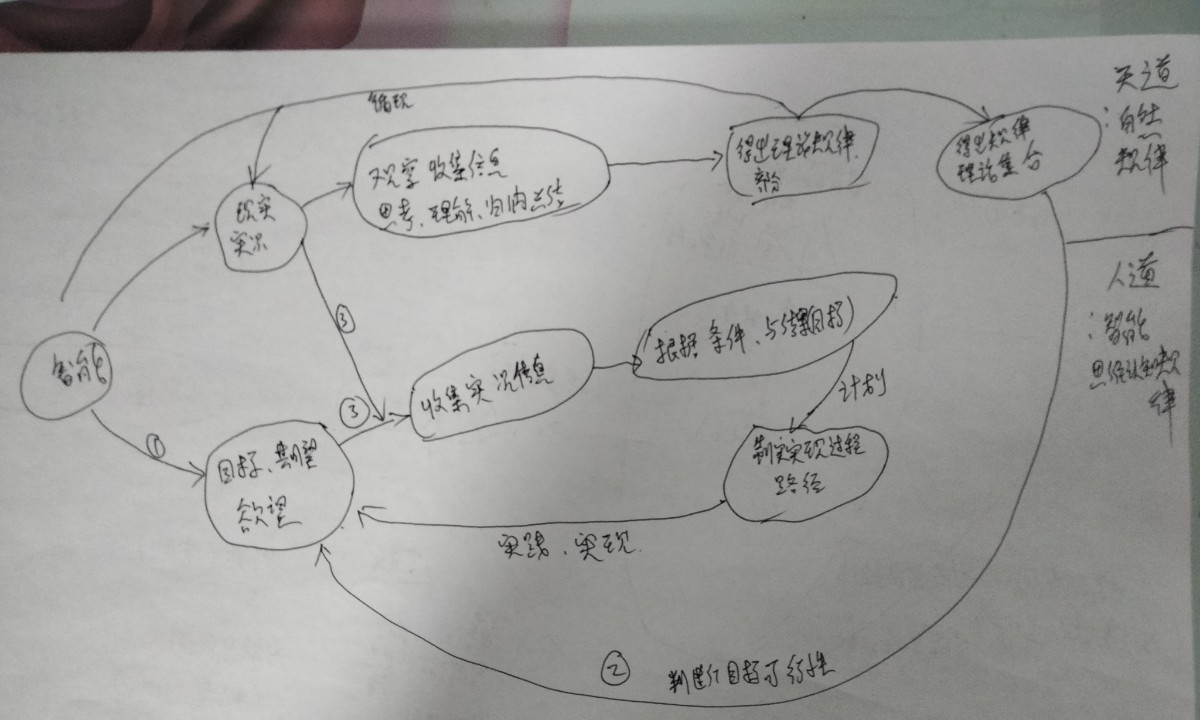 天道
：自然
规律
循环
观察 收集信息
思考、理解、归纳总结
得出理论规律
部分
得出规律
理论集合
现实
实况
人道
：智能
思维认知规
律
③
根据 条件、与结果目标)
智能
收集实况信息
计划
③
①
目标、期望
欲望
制实实现过程
路径
实践、实现
② 判断目标可行性